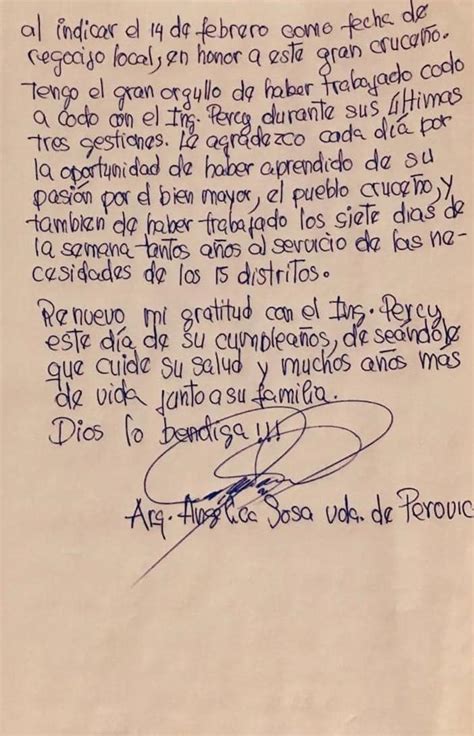 al indicar el 14 de febrero como fecha de
regocijo local, en honor a este gran cruceño.
Tengo el gran orgullo de haber trabajado codo
a codo con el Ing. Percy durante sus últimas
tres gestiones. Le agradezco cada día por
la oportunidad de haber aprendido de su
pasión por el bien mayor, el pueblo cruceño, y
tambien de haber trabajado los siete dias de
la semana tantos años al servicio de las ne-
cesidades de los 15 distritos.
Renuevo mi gratitud con el Ing. Percy
este día de su cumpleaños, de seándole
que cuide su salud y muchos años más
de vida junto a su familia.
Dios lo bendiga!!!
Arq. Angélica Sosa vda. de Perovic